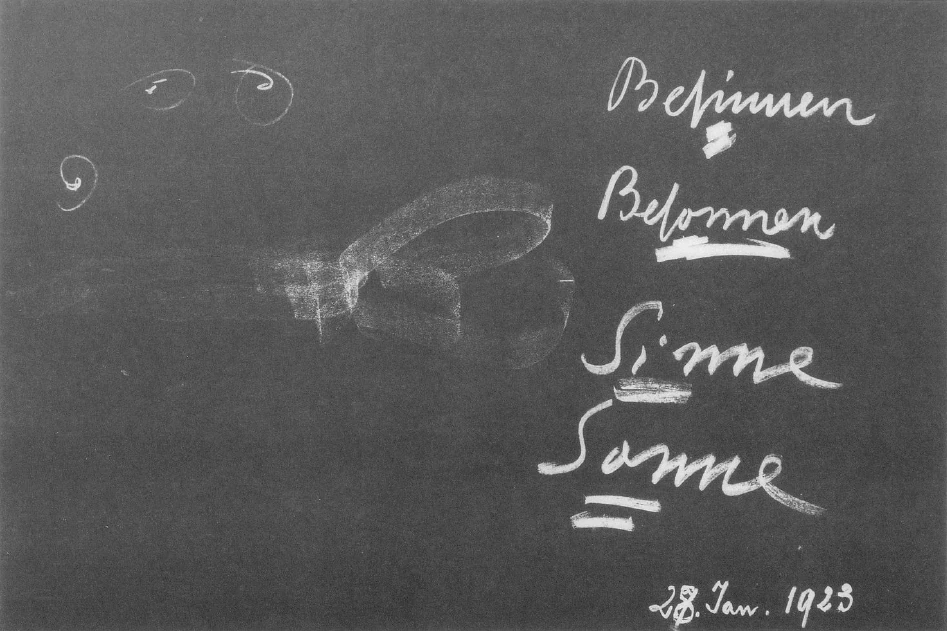 Besinnen
Besonnen
Sinne
Sonne
28. Jan. 1923